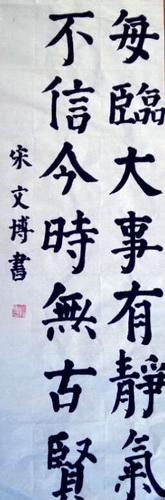 每臨大事有靜氣
不信今時無古賢
宋文博書